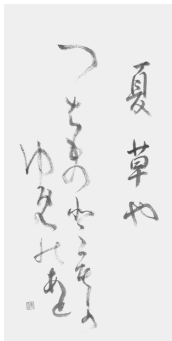 夏草や
つはものともか
ゆめのあと